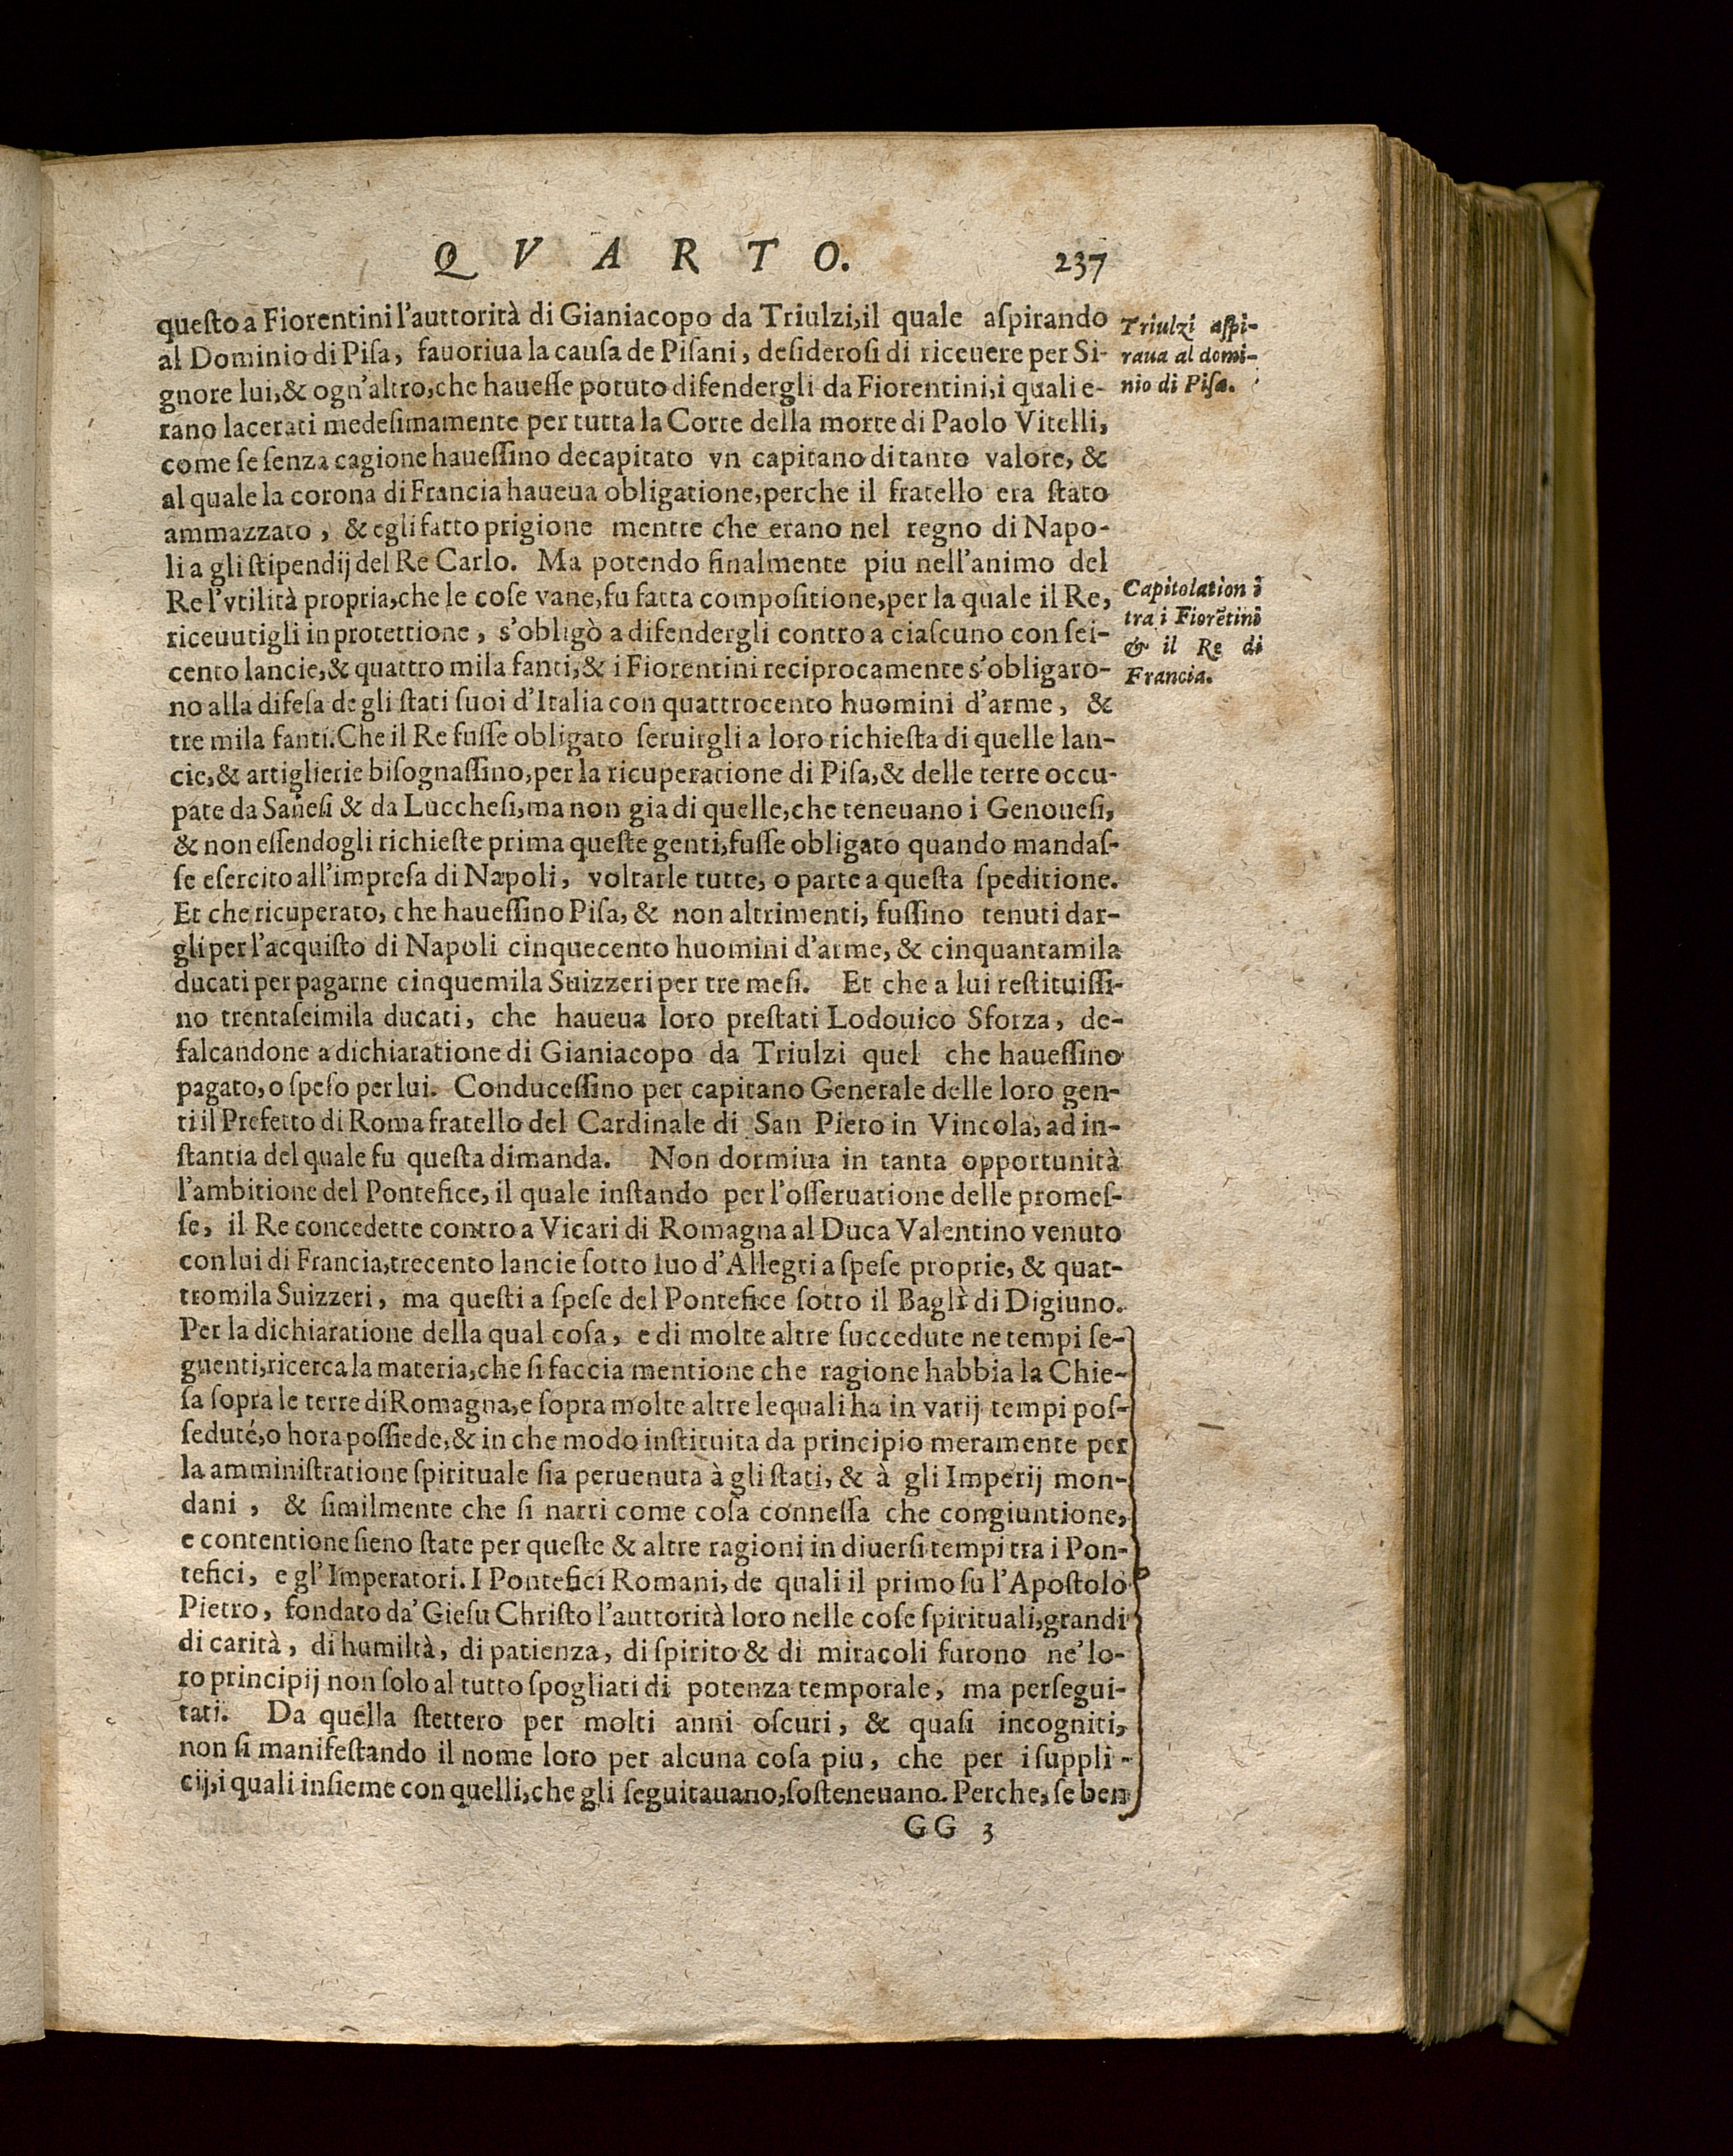 QVARTO. 237
queſto a Fiorentini l'auttorità di Gianiacopo da Triulzi, il quale aſpirando
al Dominio di Piſa, fauoriua la cauſa de Piſani, deſideroſi di riceuere per Si-
gnore lui, & ogn'altro, che haueſſe potuto difendergli da Fiorentini, i quali e-
rano lacerati medeſimamente per tutta la Corte della morte di Paolo Vitelli,
come ſe ſenza cagione haueſſino decapitato vn capitano di tanto valore, &
al quale la corona di Francia haueua obligatione, perche il fratello era ſtato
ammazzato, & egli fatto prigione mentre che erano nel regno di Napo-
li a gli ſtipendij del Re Carlo. Ma potendo finalmente piu nell'animo del
Re l'vtilità propria, che le coſe vane, fu fatta compoſitione, per la quale il Re,
riceuutigli in protettione, s'obligò a difendergli contro a ciaſcuno con ſei-
cento lancie, & quattro mila fanti, & i Fiorentini reciprocamente s'obligaro-
no alla difeſa de gli ſtati ſuoi d'Italia con quattrocento huomini d'arme, &
tre mila fanti. Che il Re fuſſe obligato ſeruirgli a loro richieſta di quelle lan-
cie, & artiglierie biſognaſſino, per la ricuperatione di Piſa, & delle terre occu-
pate da Saneſi & da Luccheſi, ma non gia di quelle, che teneuano i Genoueſi,
& non eſſendogli richieſte prima queſte genti, fuſſe obligato quando mandaſ-
ſe eſercito all'impreſa di Napoli, voltarle tutte, o parte a queſta ſpeditione.
Et che ricuperato, che haueſſino Piſa, & non altrimenti, fuſſino tenuti dar-
gli per l'acquiſto di Napoli cinquecento huomini d'arme, & cinquantamila
ducati per pagarne cinquemila Suizzeri per tre meſi. Et che a lui reſtituiſſi-
no trentaſeimila ducati, che haueua loro preſtati Lodouico Sforza, de-
falcandone a dichiaratione di Gianiacopo da Triulzi quel che haueſſino
pagato, o ſpeſo per lui. Conduceſſino per capitano Generale delle loro gen-
ti il Prefetto di Roma fratello del Cardinale di San Piero in Vincola, ad in-
ſtantia del quale fu queſta dimanda. Non dormiua in tanta opportunità
l'ambitione del Pontefice, il quale inſtando per l'oſſeruatione delle promeſ-
ſe, il Re concedette contro a Vicari di Romagna al Duca Valentino venuto
con lui di Francia, trecento lancie ſotto Iuo d'Allegri a ſpeſe proprie, & quat-
tromila Suizzeri, ma queſti a ſpeſe del Pontefice ſotto il Baglì di Digiuno.
Per la dichiaratione della qual coſa, e di molte altre ſuccedute ne tempi ſe-
guenti, ricerca la materia, che ſi faccia mentione che ragione habbia la Chie-
ſa ſopra le terre di Romagna, e ſopra molte altre le quali ha in varij tempi poſ-
ſedute, o hora poſſiede, & in che modo inſtituita da principio meramente per
la amminiſtratione ſpirituale ſia peruenuta à gli ſtati, & à gli Imperij mon-
dani, & ſimilmente che ſi narri come coſa conneſſa che congiuntione,
e contentione ſieno ſtate per queſte & altre ragioni in diuerſi tempi tra i Pon-
tefici, e gl'Imperatori. I Pontefici Romani, de quali il primo fu l'Apoſtolo
Pietro, fondato da' Gieſu Chriſto l'auttorità loro nelle coſe ſpirituali, grandi
di carità, di humiltà, di patienza, di ſpirito & di miracoli furono ne' lo-
ro principij non ſolo al tutto ſpogliati di potenza temporale, ma perſegui-
tati. Da quella ſtettero per molti anni oſcuri, & quaſi incogniti,
non ſi manifeſtando il nome loro per alcuna coſa piu, che per i ſuppli-
cij, i quali inſieme con quelli, che gli ſeguitauano, ſoſteneuano. Perche, ſe ben
GG 3
Triulzi aſpi-
raua al domi-
nio di Piſa.
Capitolation i
tra i Fiorẽtini
& il Re di
Francia.